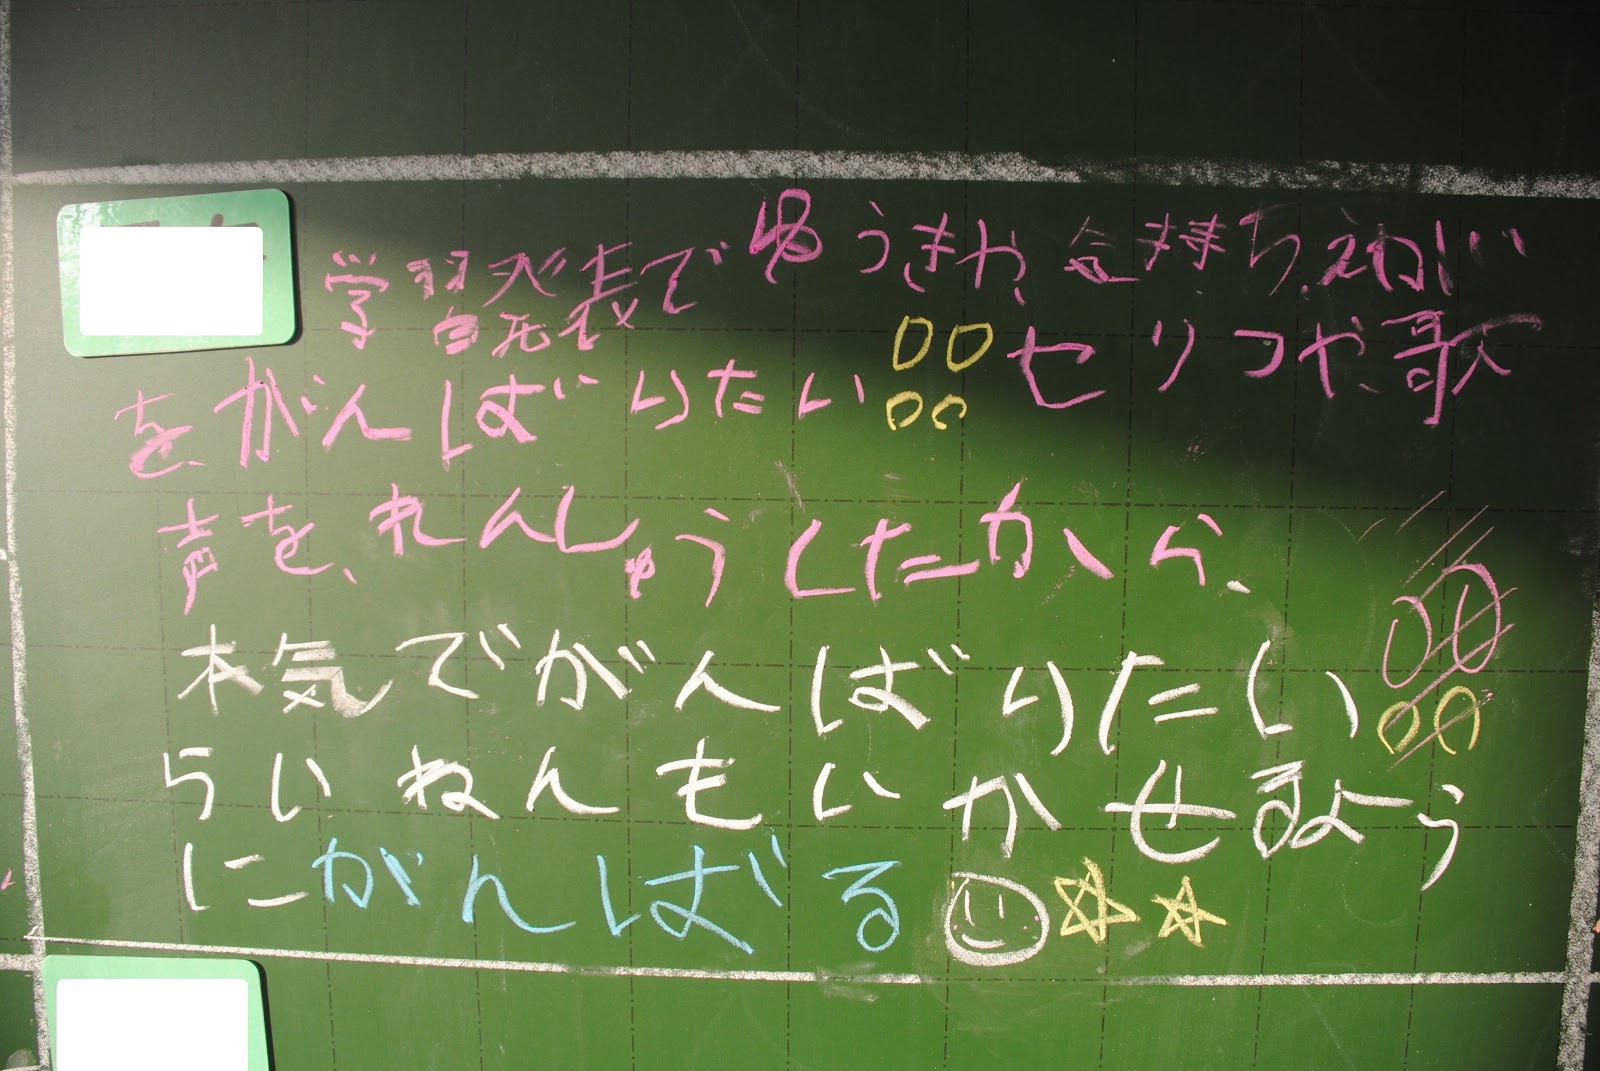 学習発表でゆうきや、気持ち、
を、がんばりたい!!セリフや、歌
声を、れんしゅうしたから、
本気でがんばりたい!!
らいねんもいかせるよう
にがんばる